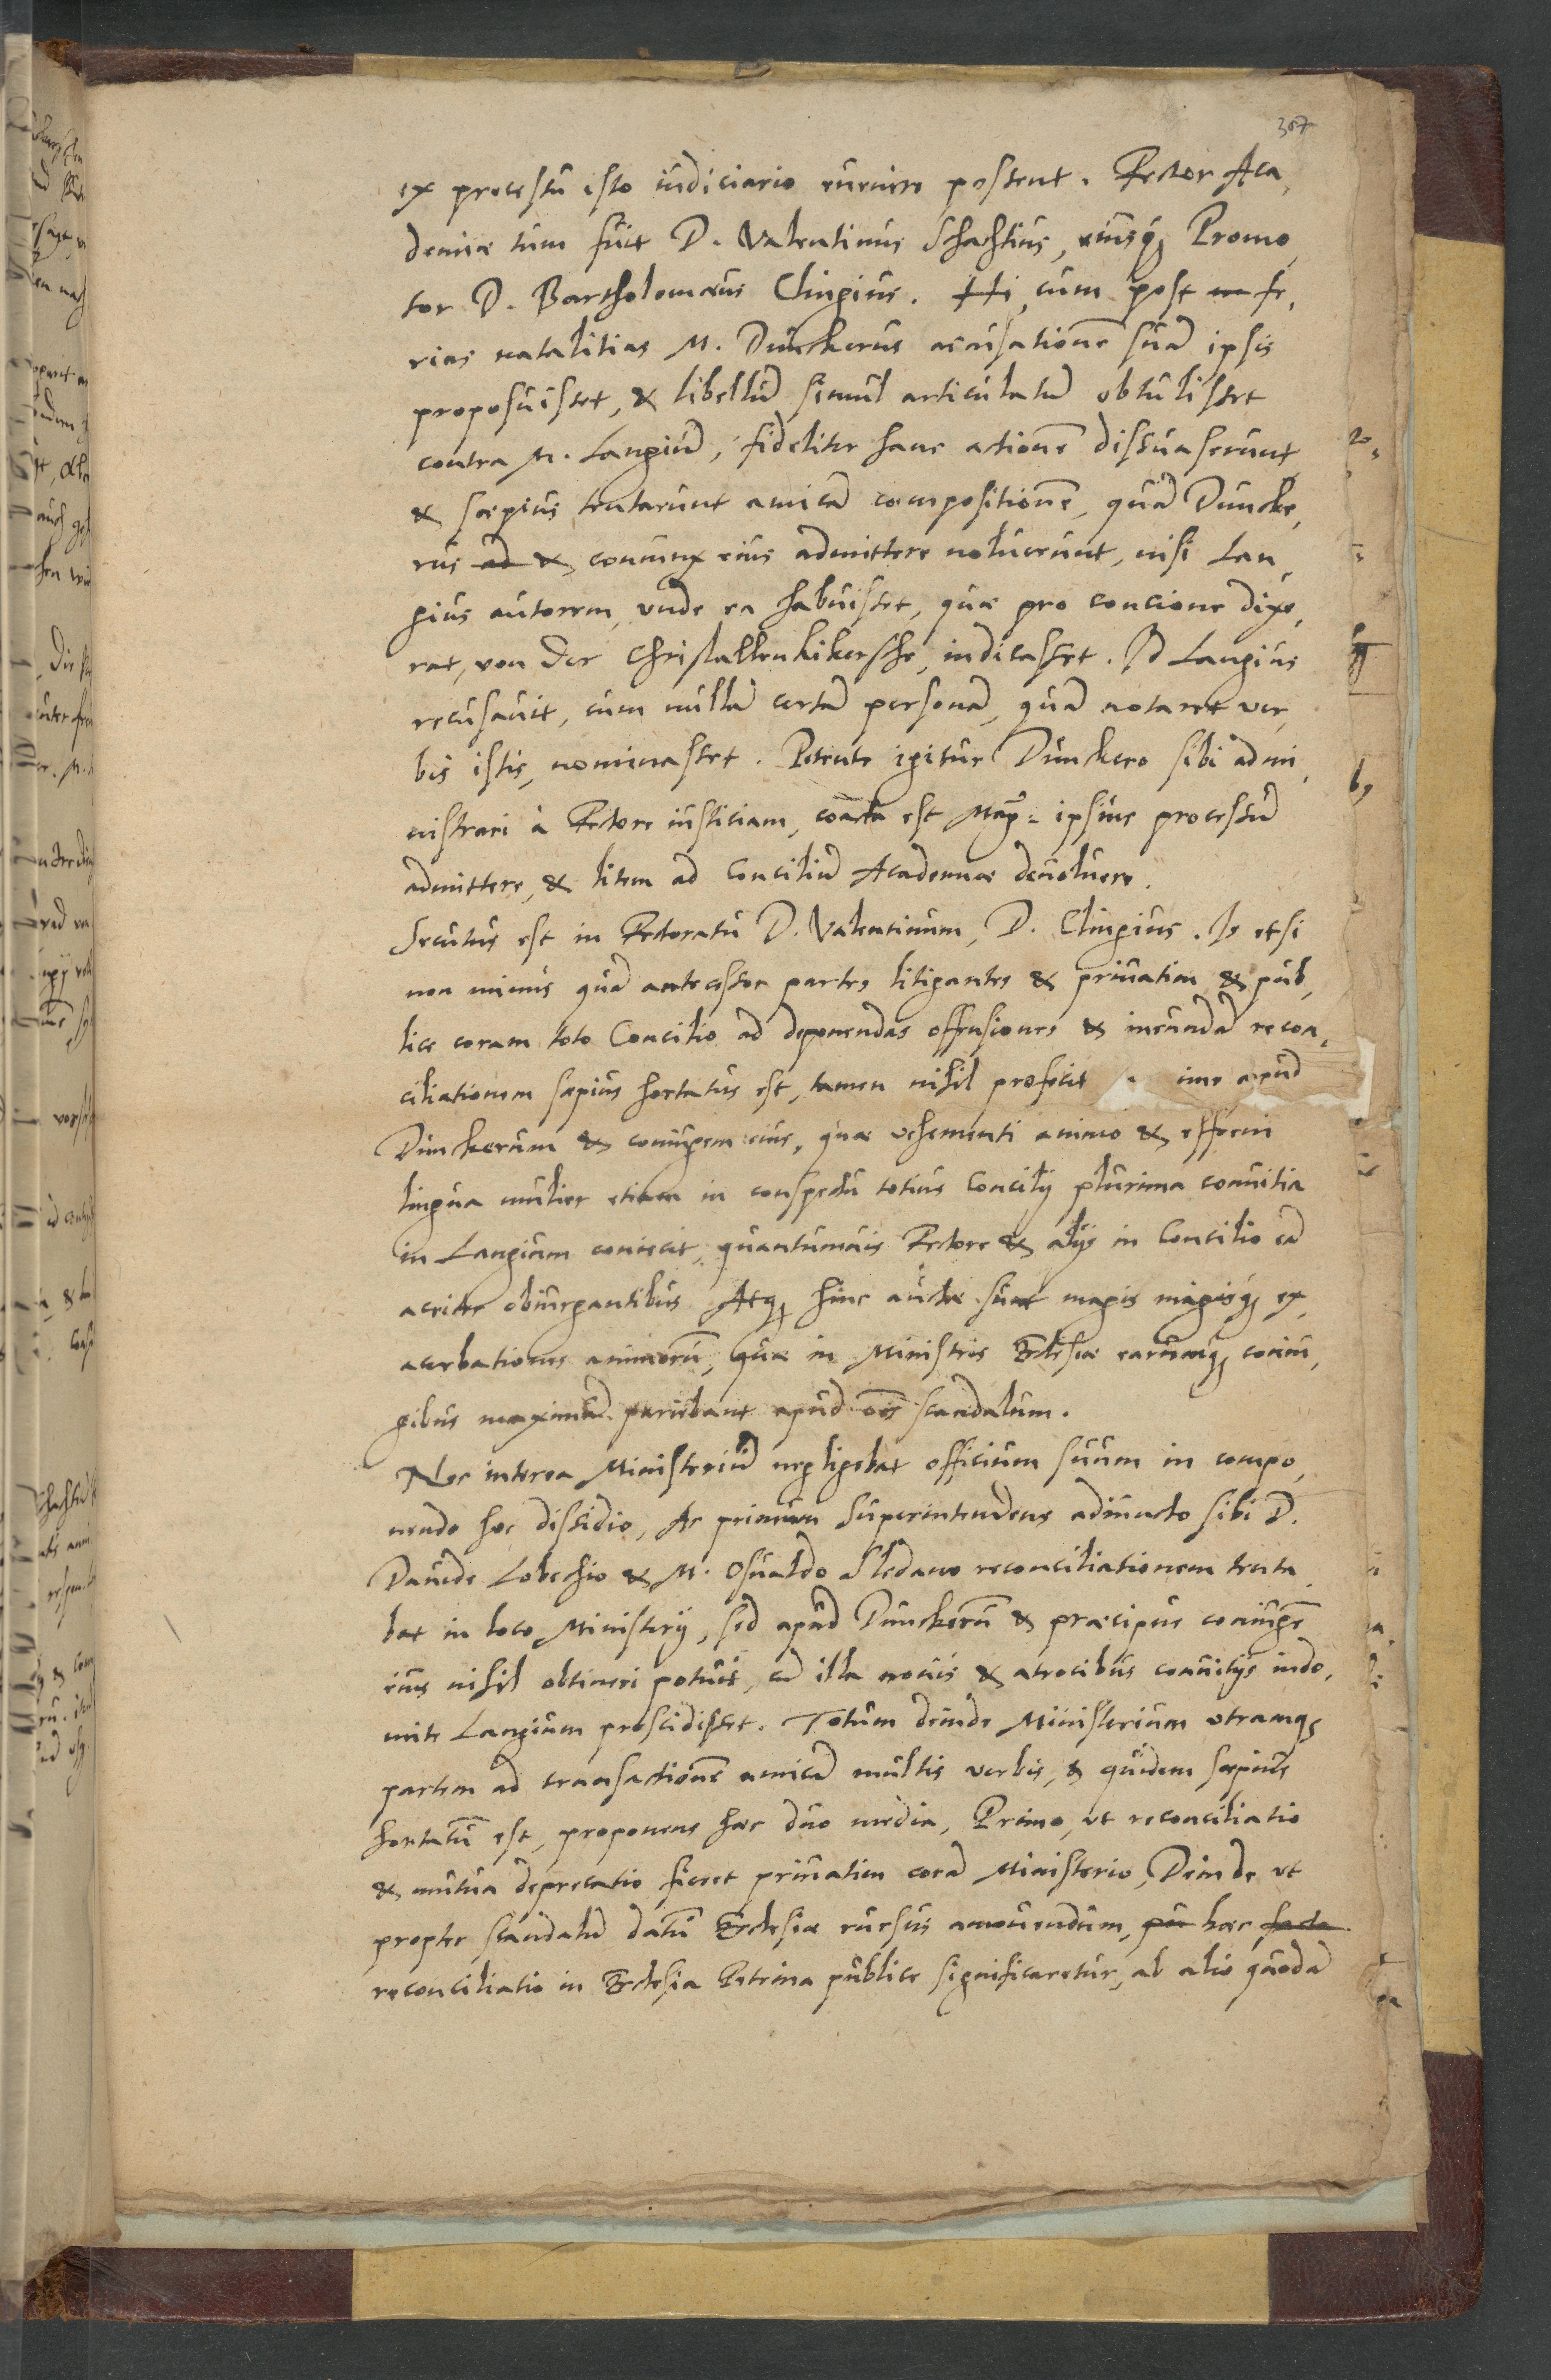 367
ex processu isto iudiciario euenire possent. Rector Aca,
demiæ tum fuit D. Valentinus Schachtius, eiusq; Promo,
tor D. Bartholomæus Clingius. Hi, cum post fe,
rias natalitias M. Dunckerus accusationē suā ipsis
proposuisset, & libellū simul articulatū obtulisset
contra M. Langiū, fideliter hanc actionē dissuaserunt
& sæpius tentarunt amicā compositionē, quā Duncke,
rus ad & coniunx eius admittere noluerunt, nisi Lan,
gius autorem, vnde ea habuisset, quæ pro concione dixe,
rat, von der Christallenkikersche, indicasset. Id Langius
recusauit, cum nullā certā personā, quā notaret ver,
bis istis, nominasset. Petente igitur Dunckero sibi admi,
nistrari à Rectore iusticiam, coacta est Mag: ipsius processū
admittere, & litem ad Conciliū Academiæ deuoluere.
Secutus est in Rectoratu D. Valentinum, D. Clingius. Is etsi
non minus quā antecessor partes litigantes & priuatim & pub,
lice coram toto Concilio ad deponendas offensiones & ineundā recon,
ciliationem sæpius hortatus est, tamen nihil profecit apud
Dunckerum & coniugem eius, quæ vehementi animo & effreni
lingua mulier etiam in conspectu totius Concilij plurima conuitia
in Langium coniecit, quantumuis Rectore & alijs in Concilio eā
acriter obiurgantibus. Atq; hinc auctæ sunt magis magisq; ex,
acerbationes animorū, quæ in Ministris Ecclesiæ earumq; coniu,
gibus maximū pariebant apud oēs scandalum.
Nec interea Ministeriū negligebat officium suum in compo,
nendo hoc dissidio, Ac primum Superintendens adiuncto sibi D.
Dauide Lobechio & M. Osualdo Sledano reconciliationem tenta,
bat in loco Ministerij, sed apud Dunckerū & præcipue coniugē
eius nihil obtineri potuit, cū illa nouis & atrocibus conuitijs indo,
mite Langium proscidisset. Totum deinde Ministerium vtramq;
partem ad transactionē amicā multis verbis, & quidem sæpius
hortatū est, proponens hæc duo media, Primo, vt reconciliatio
& mutua deprecatio fieret priuatim corā Ministerio, Deinde vt
propter scandalū datū Ecclesiæ rursus amouendum, hæc facta
reconciliatio in Ecclesia Petrina publice significaretur, ab alio quodā